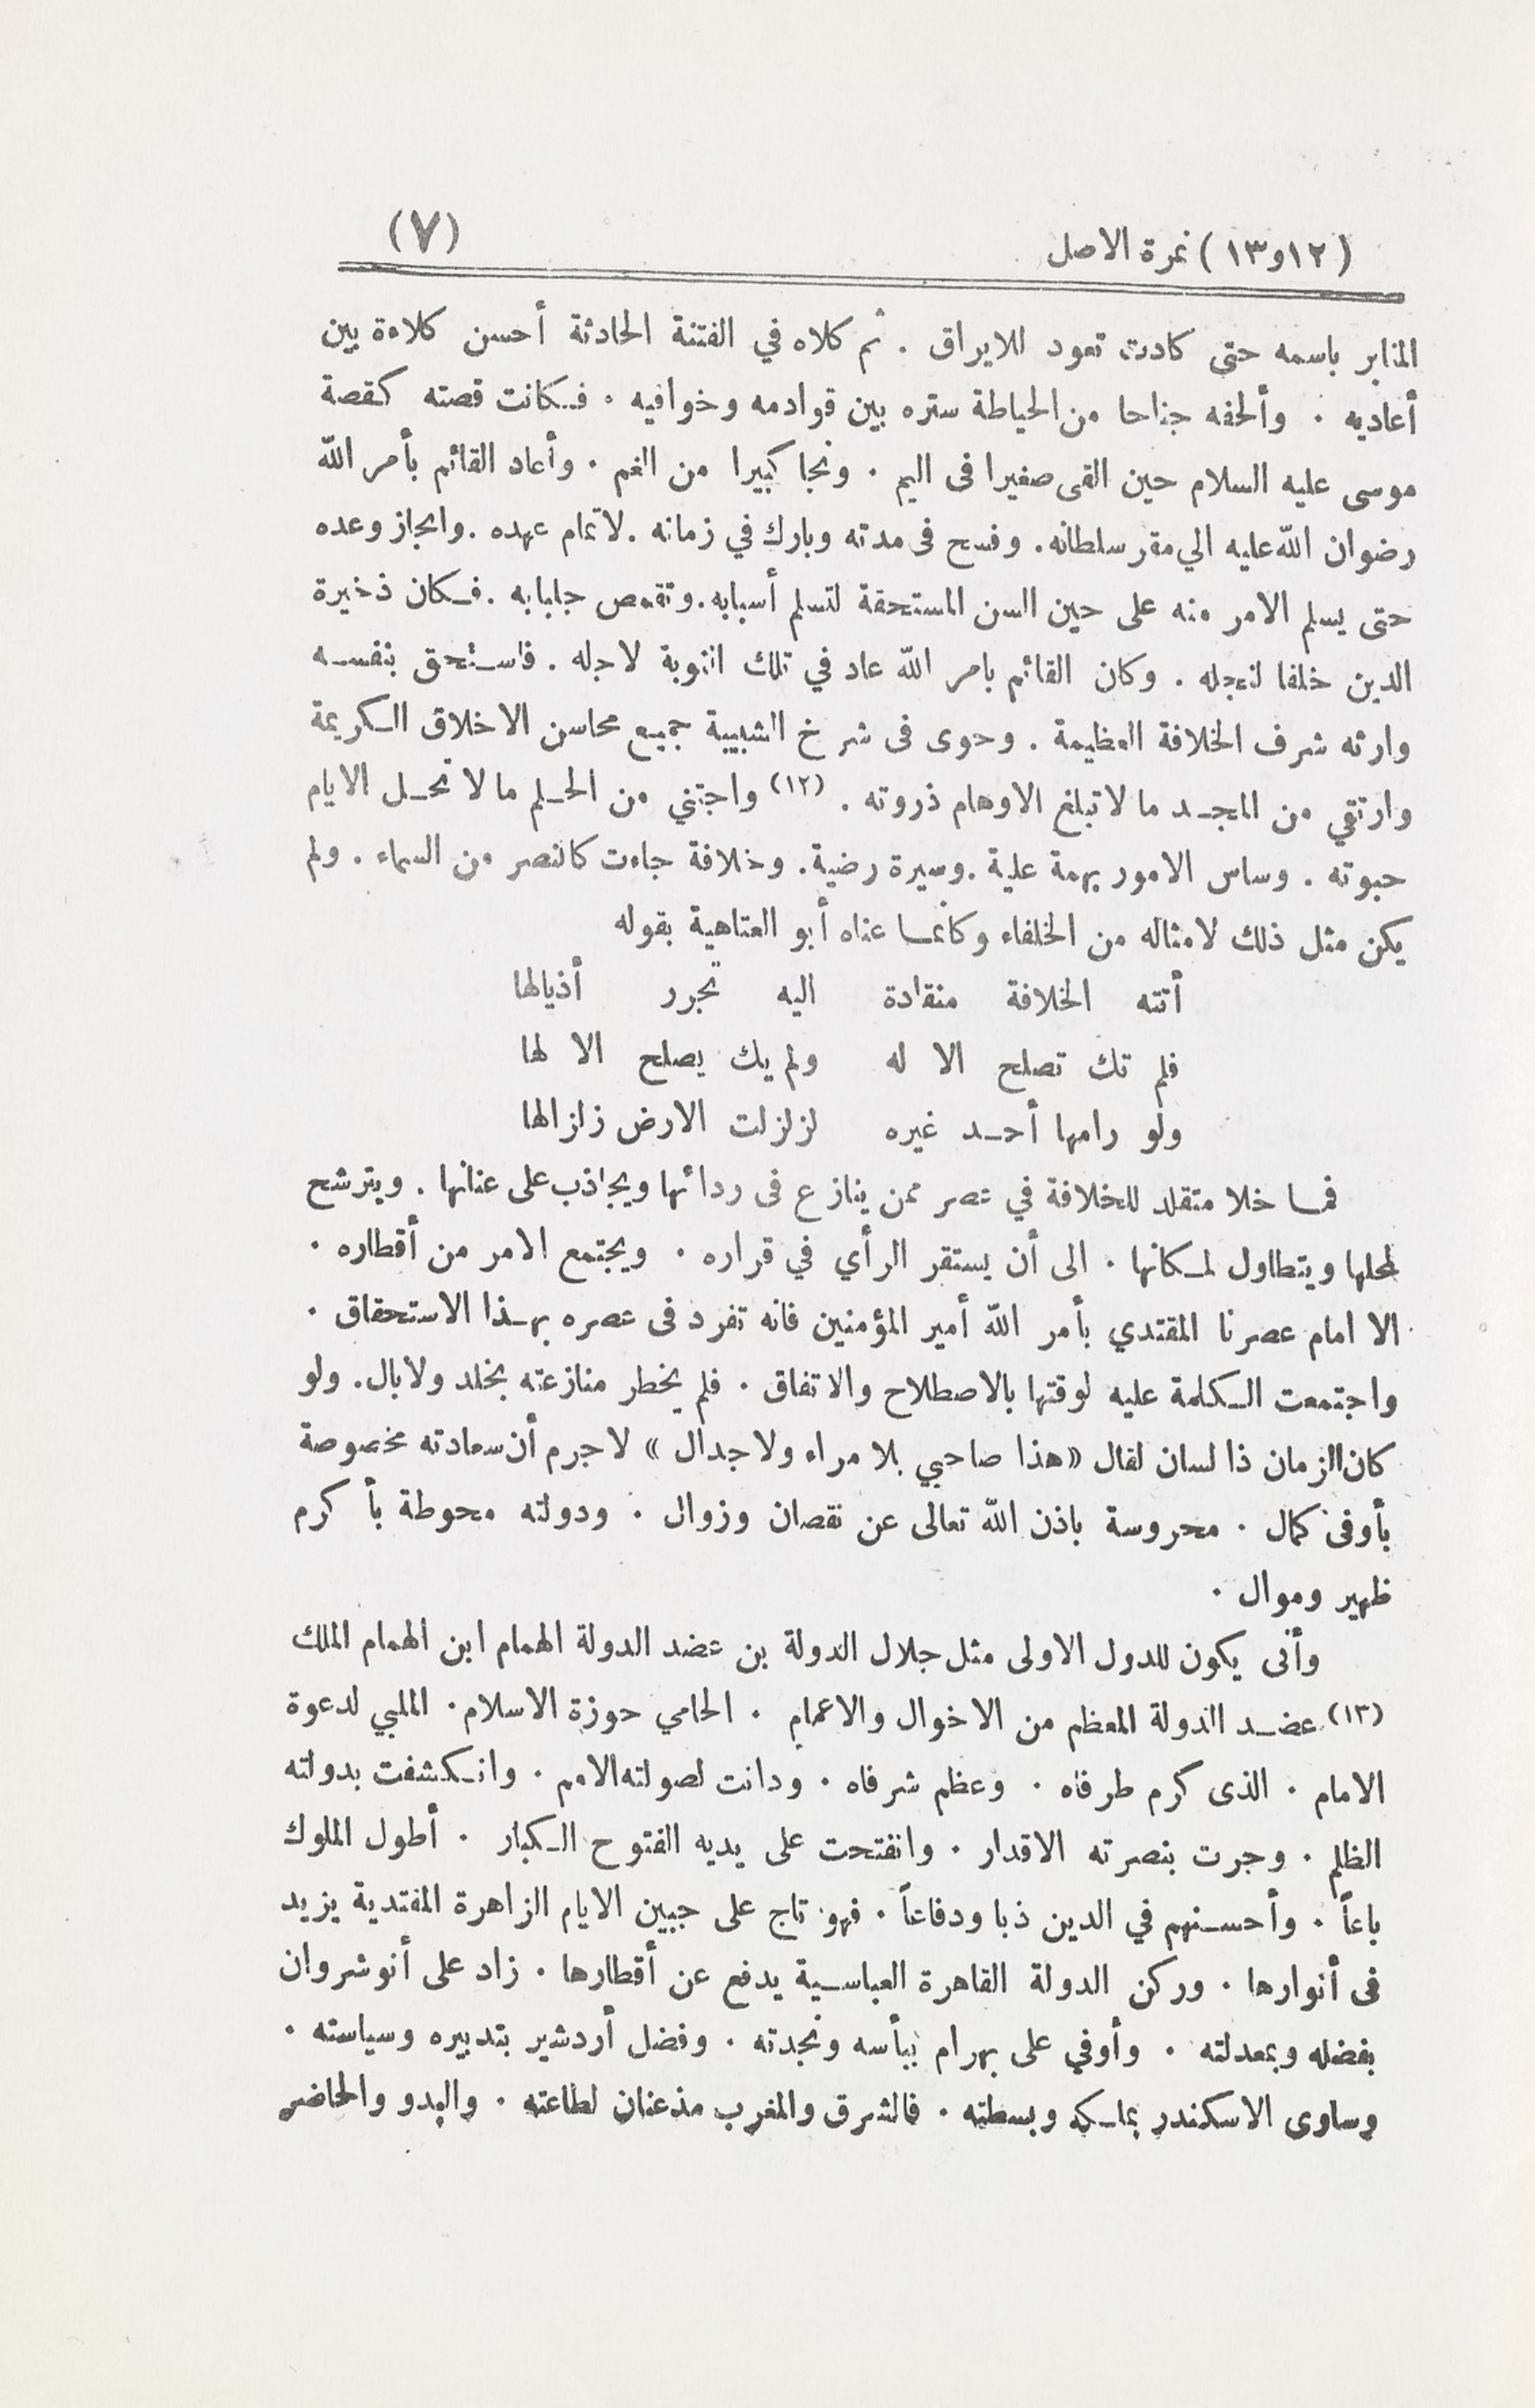 (١٢و١٣) نمرة الاصل (٧)
المنابر باسمه حتى كادت تعود للايراق . ثم كلاه في الفتنة الحادثة أحسن كلاءة بين
أعاديه . وألحفه جناحا من الحياطة ستره بين قوادمه وخوافيه . فكانت قصته كقصة
موسى عليه السلام حين القى صغيرا فى اليم . ونجا كبيرا من الغم . وأعاد القائم بأمر الله
رضوان الله عليه الي مقر سلطانه . وفسح فى مدته وبارك في زمانه . لاتمام عهده . وانجاز وعده
حتى يسلم الامر منه على حين السن المستحقة لتسلم أسبابه . وتقمص جلبابه . فكان ذخيرة
الدين خلفا لنجله . وكان القائم بامر الله عاد في تلك النوبة لاجله . فاستحق بنفسه
وارثه شرف الخلافة العظيمة . وحوى فى شرخ الشبيبة جميع محاسن الاخلاق الكريمة
وارتقي من المجد ما لا تبلغ الاوهام ذروته . (١٢) واجتني من الحلم ما لا تحل الايام
حبوته . وساس الامور بهمة علية . وسيرة رضية . وخلافة جاءت كالنصر من السماء . ولم
يكن مثل ذلك لامثاله من الخلفاء وكانما عناه أبو العتاهية بقوله
أتته الخلافة منقادة اليه تجرر أذيالها
فلم تك تصلح الا له ولم يك يصلح الا لها
ولو رامها أحد غيره لزلزلت الارض زلزالها
فما خلا متقلد للخلافة في عصر ممن ينازع فى ردائها ويجاذب على عنانها . ويترشح
لمحلها ويتطاول لمكانها . الى أن يستقر الرأي في قراره . ويجتمع الامر من أقطاره .
الا امام عصرنا المقتدي بأمر الله أمير المؤمنين فانه تفرد فى عصره بهذا الاستحقاق .
واجتمعت الكلمة عليه لوقتها بالاصطلاح والاتفاق . فلم يخطر منازعته بخلد ولابال . ولو
كان الزمان ذا لسان لقال «هذا صاحبي بلا مراء ولا جدال» لاجرم أن سعادته مخصوصة
بأوفى كمال . محروسة باذن الله تعالى عن نقصان وزوال . ودولته محوطة بأكرم
ظهير وموال .
وأنى يكون للدول الاولى مثل جلال الدولة بن عضد الدولة الهمام ابن الهمام الملك
(١٣) عضد الدولة المعظم من الاخوال والاعمام . الحامي حوزة الاسلام . الملبي لدعوة
الامام . الذى كرم طرفاه . وعظم شرفاه . ودانت لصولته الامم . وانكشفت بدولته
الظلم . وجرت بنصرته الاقدار . وانفتحت على يديه الفتوح الكبار . أطول الملوك
باعاً . وأحسنهم في الدين ذبا ودفاعاً . فهو تاج على جبين الايام الزاهرة المقتدية يزيد
فى أنوارها . وركن الدولة القاهرة العباسية يدفع عن أقطارها . زاد على أنوشروان
بفضله وبمعدلته . وأوفي على بهرام ببأسه ونجدته . وفضل أردشير بتدبيره وسياسته .
وساوى الاسكندر بملكه وبسطته . فالشرق والمغرب مذعنان لطاعته . والبدو والحاضر